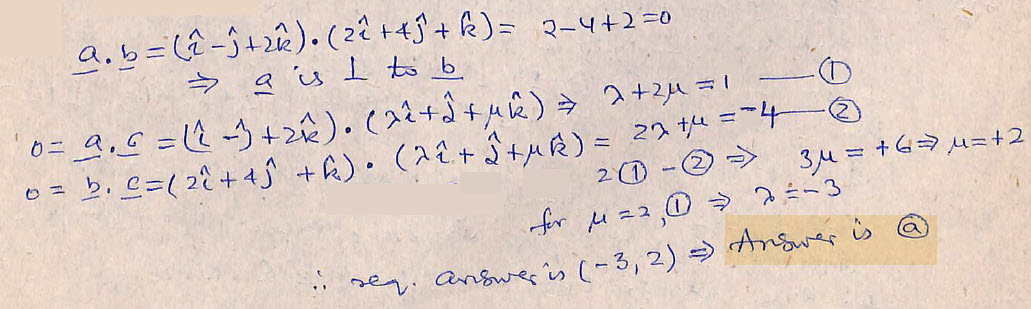 a . b = (î - ĵ + 2k̂) . (2î + 4ĵ + k̂) = 2 - 4 + 2 = 0
⇒ a is ⊥ to b
0 = a . c = (î - ĵ + 2k̂) . (λî + ĵ + μk̂) ⇒ λ + 2μ = 1 — ①
0 = b . c = (2î + 4ĵ + k̂) . (λî + ĵ + μk̂) = 2λ + μ = -4 — ②
2① - ② ⇒ 3μ = +6 ⇒ μ = +2
for μ = 2, ① ⇒ λ = -3
∴ req. answer is (-3, 2) ⇒ Answer is ⓐ